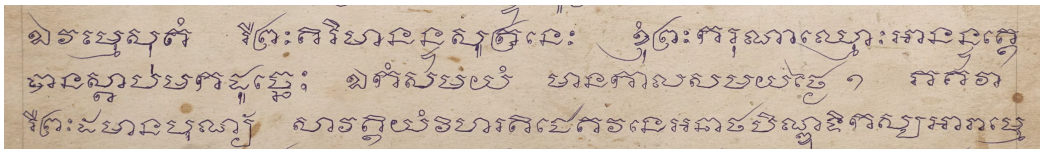 ឯវម្មេសុតំ រឺព្រះគរិមានន្ទសូត្រនេះ ខ្ញុំព្រះករុណាឈ្មោះអានន្ទត្ថេ
បានស្តាប់មកដូច្នេះ ឯកំសមយំ មានកាលសមយថ្ងៃ ១ ភគវា
រឺព្រះដមានបុណ្យ សាវត្ថិយំវិហរតិជេតវនេអនាថបិណ្ឌិកស្សអារាម្មេ